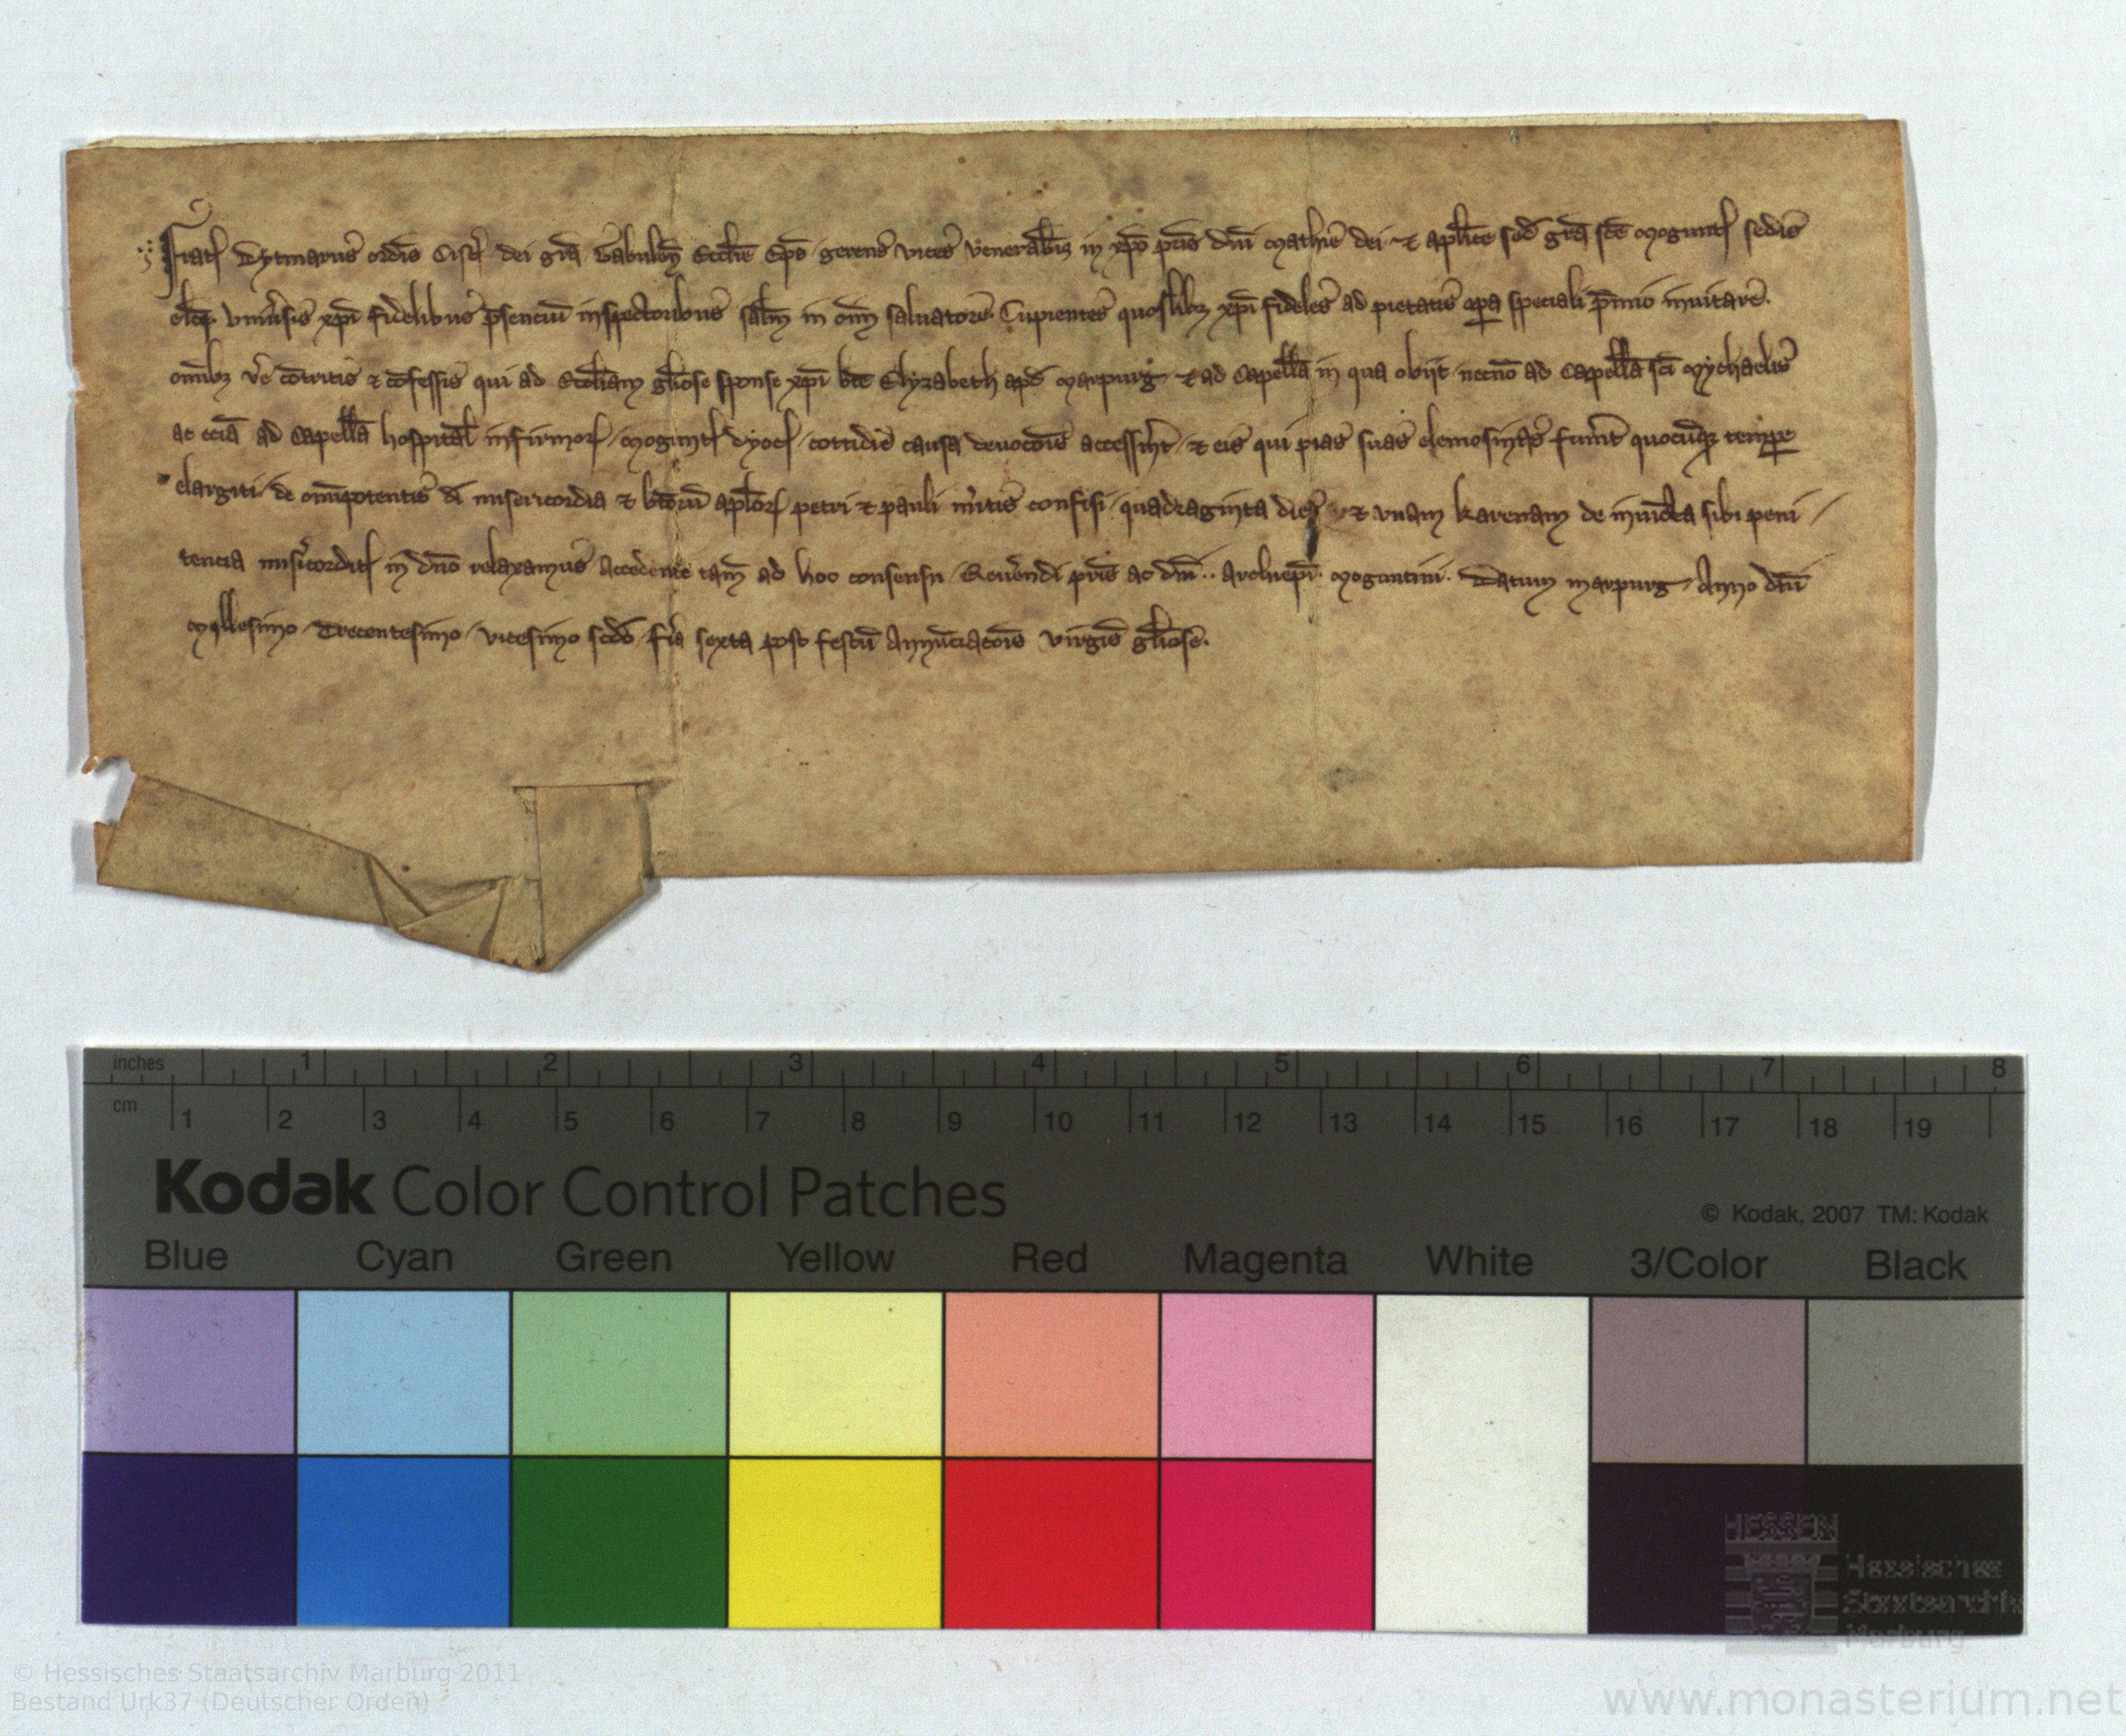 Frat̄ Dytmarus ordīs Cist̄ dei gr̄a Gabulen̄ Eccl̄ie Ep̄s gerens vices Venerabil̄ in xp̄o pr̄is dn̄i Mathie dei et apl̄ice sed̄ gr̄a sc̄e Magunt̄ sedis
el̄cī Vniu̓sis xp̄i fidelibus p̄senciū inspectoribus sal̄m in om̄i saluatore. Cupientes quoslibꝫ xp̄i fideles ad pietatis oꝑa speciali p̄mio inuitare.
om̄ibꝫ v̓e cōtritis et cōfessis qui ad Eccl̄iam gl̄iose sponse xp̄i bt̄e Elyzabeth apd̄ Marpurg et ad Capell̄ā in qua obijt necnō ad Capell̄ā sc̄i Mychaelis
ac eciā ad Capell̄ā hospital̄ infirmoꝝ Magunt̄ dyoc̄ cottidie causa deuoc̄ois accessīnt et eis qui pias suas elemosinas fu̓int quocūqꝫ temꝑe
elargiti de om̄ipotentis d̄i misericordia et bt̄orū apl̄oꝝ petri et pauli m̓itis confisi quadraginta dies et vnam karenam de iniūcta sibi peni
tencia mis̓icordit̄ in dn̄o relaxamus Accedente tam̄ ad hoc consensu Reu̓endi pr̄is ac dn̄i .. archiep̄i Maguntini. Datum marpurg Anno dn̄i
Myllesimo Trecentesimo vicesimo sc̄do f̓ia sexta post festū Annūciac̄ois virgīs gl̄iose.
inches 1 2 3 4 5 6 7 8
cm 1 2 3 4 5 6 7 8 9 10 11 12 13 14 15 16 17 18 19
Kodak Color Control Patches
© Kodak, 2007 TM: Kodak
Blue Cyan Green Yellow Red Magenta White 3/Color Black
HESSEN
Hessisches
Staatsarchiv
Marburg
© Hessisches Staatsarchiv Marburg 2011
Bestand Urk37 (Deutscher Orden)
www.monasterium.net